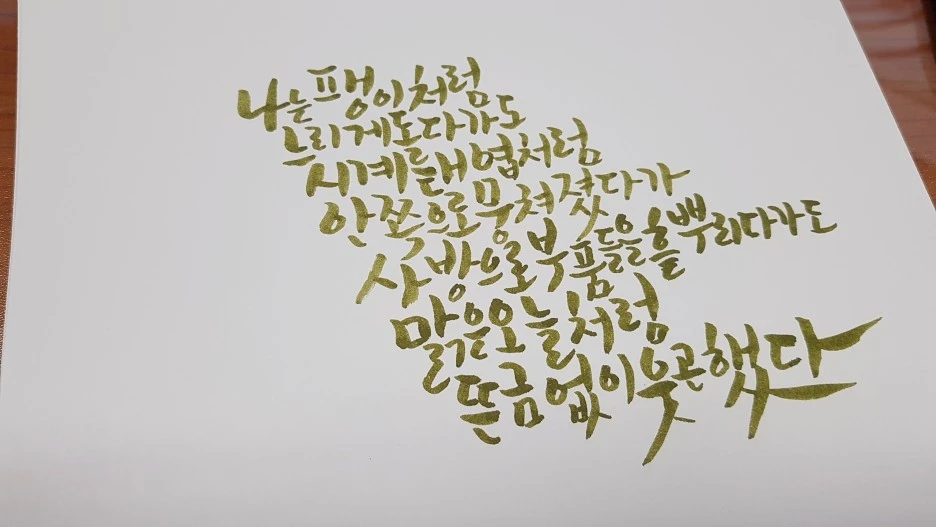 나는 팽이처럼
느리게 도다가도
시계 태엽처럼
안쪽으로 뭉쳐졌다가
사방으로 부품들을 흩뿌리다가도
맑은 오늘처럼
뜬금없이 웃곤 했다